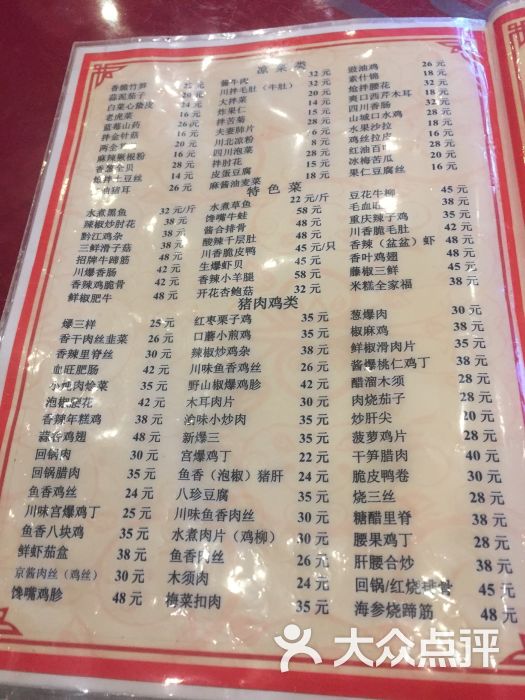 凉菜类
香脆竹笋 22元
蒜泥茄子 20元
白菜心蛰皮 24元
老虎菜 16元
蓝莓山药 26元
拌金针菇 16元
麻辣椒粉 16元
香葱全贝
炝拌土豆丝 16元
油猪耳 26元
酱牛
川拌毛肚（牛肚） 32元
大拌菜 20元
炸果仁 14元
拌苦菊
夫妻肺片
川北凉粉
四川泡菜
拌肘花
皮蛋豆腐
麻酱油麦菜 18元
豉油鸡 26元
素什锦 18元
炝拌腰花
爽口西芹木耳 18元
四川香肠
山城口水鸡
水果沙拉
鸡丝拉皮
红油百叶
冰梅苦瓜 20元
果仁豆腐丝 16元
特色菜
水煮黑鱼 32元/斤
辣椒炒肘花 38元
黔江鸡杂 38元
三鲜滑子菇 38元
招牌牛蹄筋 48元
川爆香肠 42元
香辣鸡脆骨 42元
鲜椒肥牛 48元
水煮草鱼 22元/斤
馋嘴牛蛙 58元
酱合排骨 48元
酸辣千层肚 48元
川香脆皮鸭 45元/只
生爆虾贝 45元
香辣小羊腿 58元
开花杏鲍菇 32元
豆花牛柳 45元
毛血旺 38元
重庆辣子鸡 45元
川香脆毛肚 42元
香辣（盆盆）虾 48元
香叶鸡翅 48元
藤椒三鲜 38元
米糕全家福 38元
猪肉鸡类
爆三样 25元
香干肉丝韭菜 26元
香辣里脊丝 30元
血旺肥肠 42元
小炖肉烩菜 35元
泡椒腰花 42元
香辣年糕鸡 38元
蒜香鸡翅 48元
回锅肉 30元
回锅腊肉 35元
鱼香鸡丝 24元
川味宫爆鸡丁 25元
鱼香八块鸡 35元
鲜虾茄盒 38元
京酱肉丝（鸡丝） 30元
馋嘴鸡胗 48元
红枣栗子鸡 35元
口蘑小煎鸡 35元
辣椒炒鸡杂 38元
川味鱼香鸡丝 26元
野山椒爆鸡胗 42元
木耳肉片 30元
渝味小炒肉 35元
新爆三 35元
宫爆鸡丁 22元
鱼香（泡椒）猪肝 24元
八珍豆腐 35元
川味鱼香肉丝 28元
水煮肉片（鸡柳） 30元
鱼香肉丝 26元
木须肉 24元
梅菜扣肉 35元
葱爆肉 30元
椒麻鸡 38元
鲜椒滑肉片 35元
酱爆桃仁鸡丁 30元
醋溜木须 28元
肉烧茄子 28元
炒肝尖 20元
菠萝鸡片 28元
干笋腊肉 40元
脆皮鸭卷 30元
烧三丝 28元
糖醋里脊 38元
腰果鸡丁 28元
肝腰合炒 38元
回锅/红烧排骨 45元
海参烧蹄筋 48元
大众点评